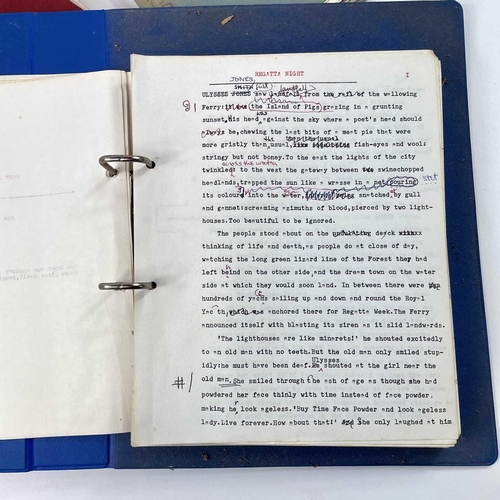 REGATTA NIGHT
1
JONES,
ULYSSES JONES saw landfall from the rail of the wallowing
Ferry: the Island of Pigs grazing in a grunting
sunset, his head was against the sky where a poet's head should
always be, chewing the last bits of a meat pie that were
more gristly than usual, like fish-eyes and wool:
stringy but not boney. To the east the lights of the city
across the water
twinkled to the west the gateway between the swinechopped
headlands, trapped the sun like a wrasse in a net pouring stet
its colours into the water, snatched by gull
and gannet: screaming azimuths of blood, pierced by two light-
houses. Too beautiful to be ignored.
The people stood about on the deck
thinking of life and death, as people do at close of day,
watching the long green lizard line of the Forest they had
left behind on the other side, and the dream town on the water
side at which they would soon land. In between there were
hundreds of yachts sailing up and down and round the Royal
Yacht, which was anchored there for Regatta Week. The Ferry
announced itself with blasting its siren as it slid landwards.
'The lighthouses are like minarets!' he shouted excitedly
to an old man with no teeth. But the old man only smiled stup-
Ulysses
idly: he must have been deaf. He shouted at the girl near the
old man. She smiled through the ash of age as though she had
#1
powdered her face thinly with time instead of face powder,
making her look ageless. 'Buy Time Face Powder and look ageless
lady. Live forever. How about that!' She only laughed at him